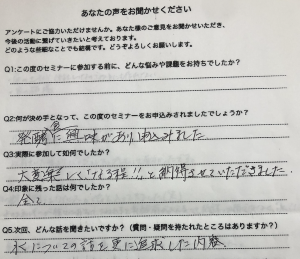 あなたの声をお聞かせください
アンケートにご協力いただけませんか。あなた様のご意見をお聞かせいただき、
今後の活動に繋げていきたいと考えております。
どのような些細なことでも結構です。どうぞよろしくお願いします。
Q1:この度のセミナーに参加する前に、どんな悩みや課題をお持ちでしたか?
Q2:何が決め手となって、この度のセミナーをお申込みされましたでしょうか?
発酵食に興味があり申込みました
Q3:実際に参加して如何でしたか?
大変楽しく「なる程!!」と納得させていただきました.
Q4:印象に残った話は何でしたか?
全て.
Q5.次回、どんな話を聞きたいですか?(質問・疑問を持たれたところはありますか?)
についての話を更に追求した内容.